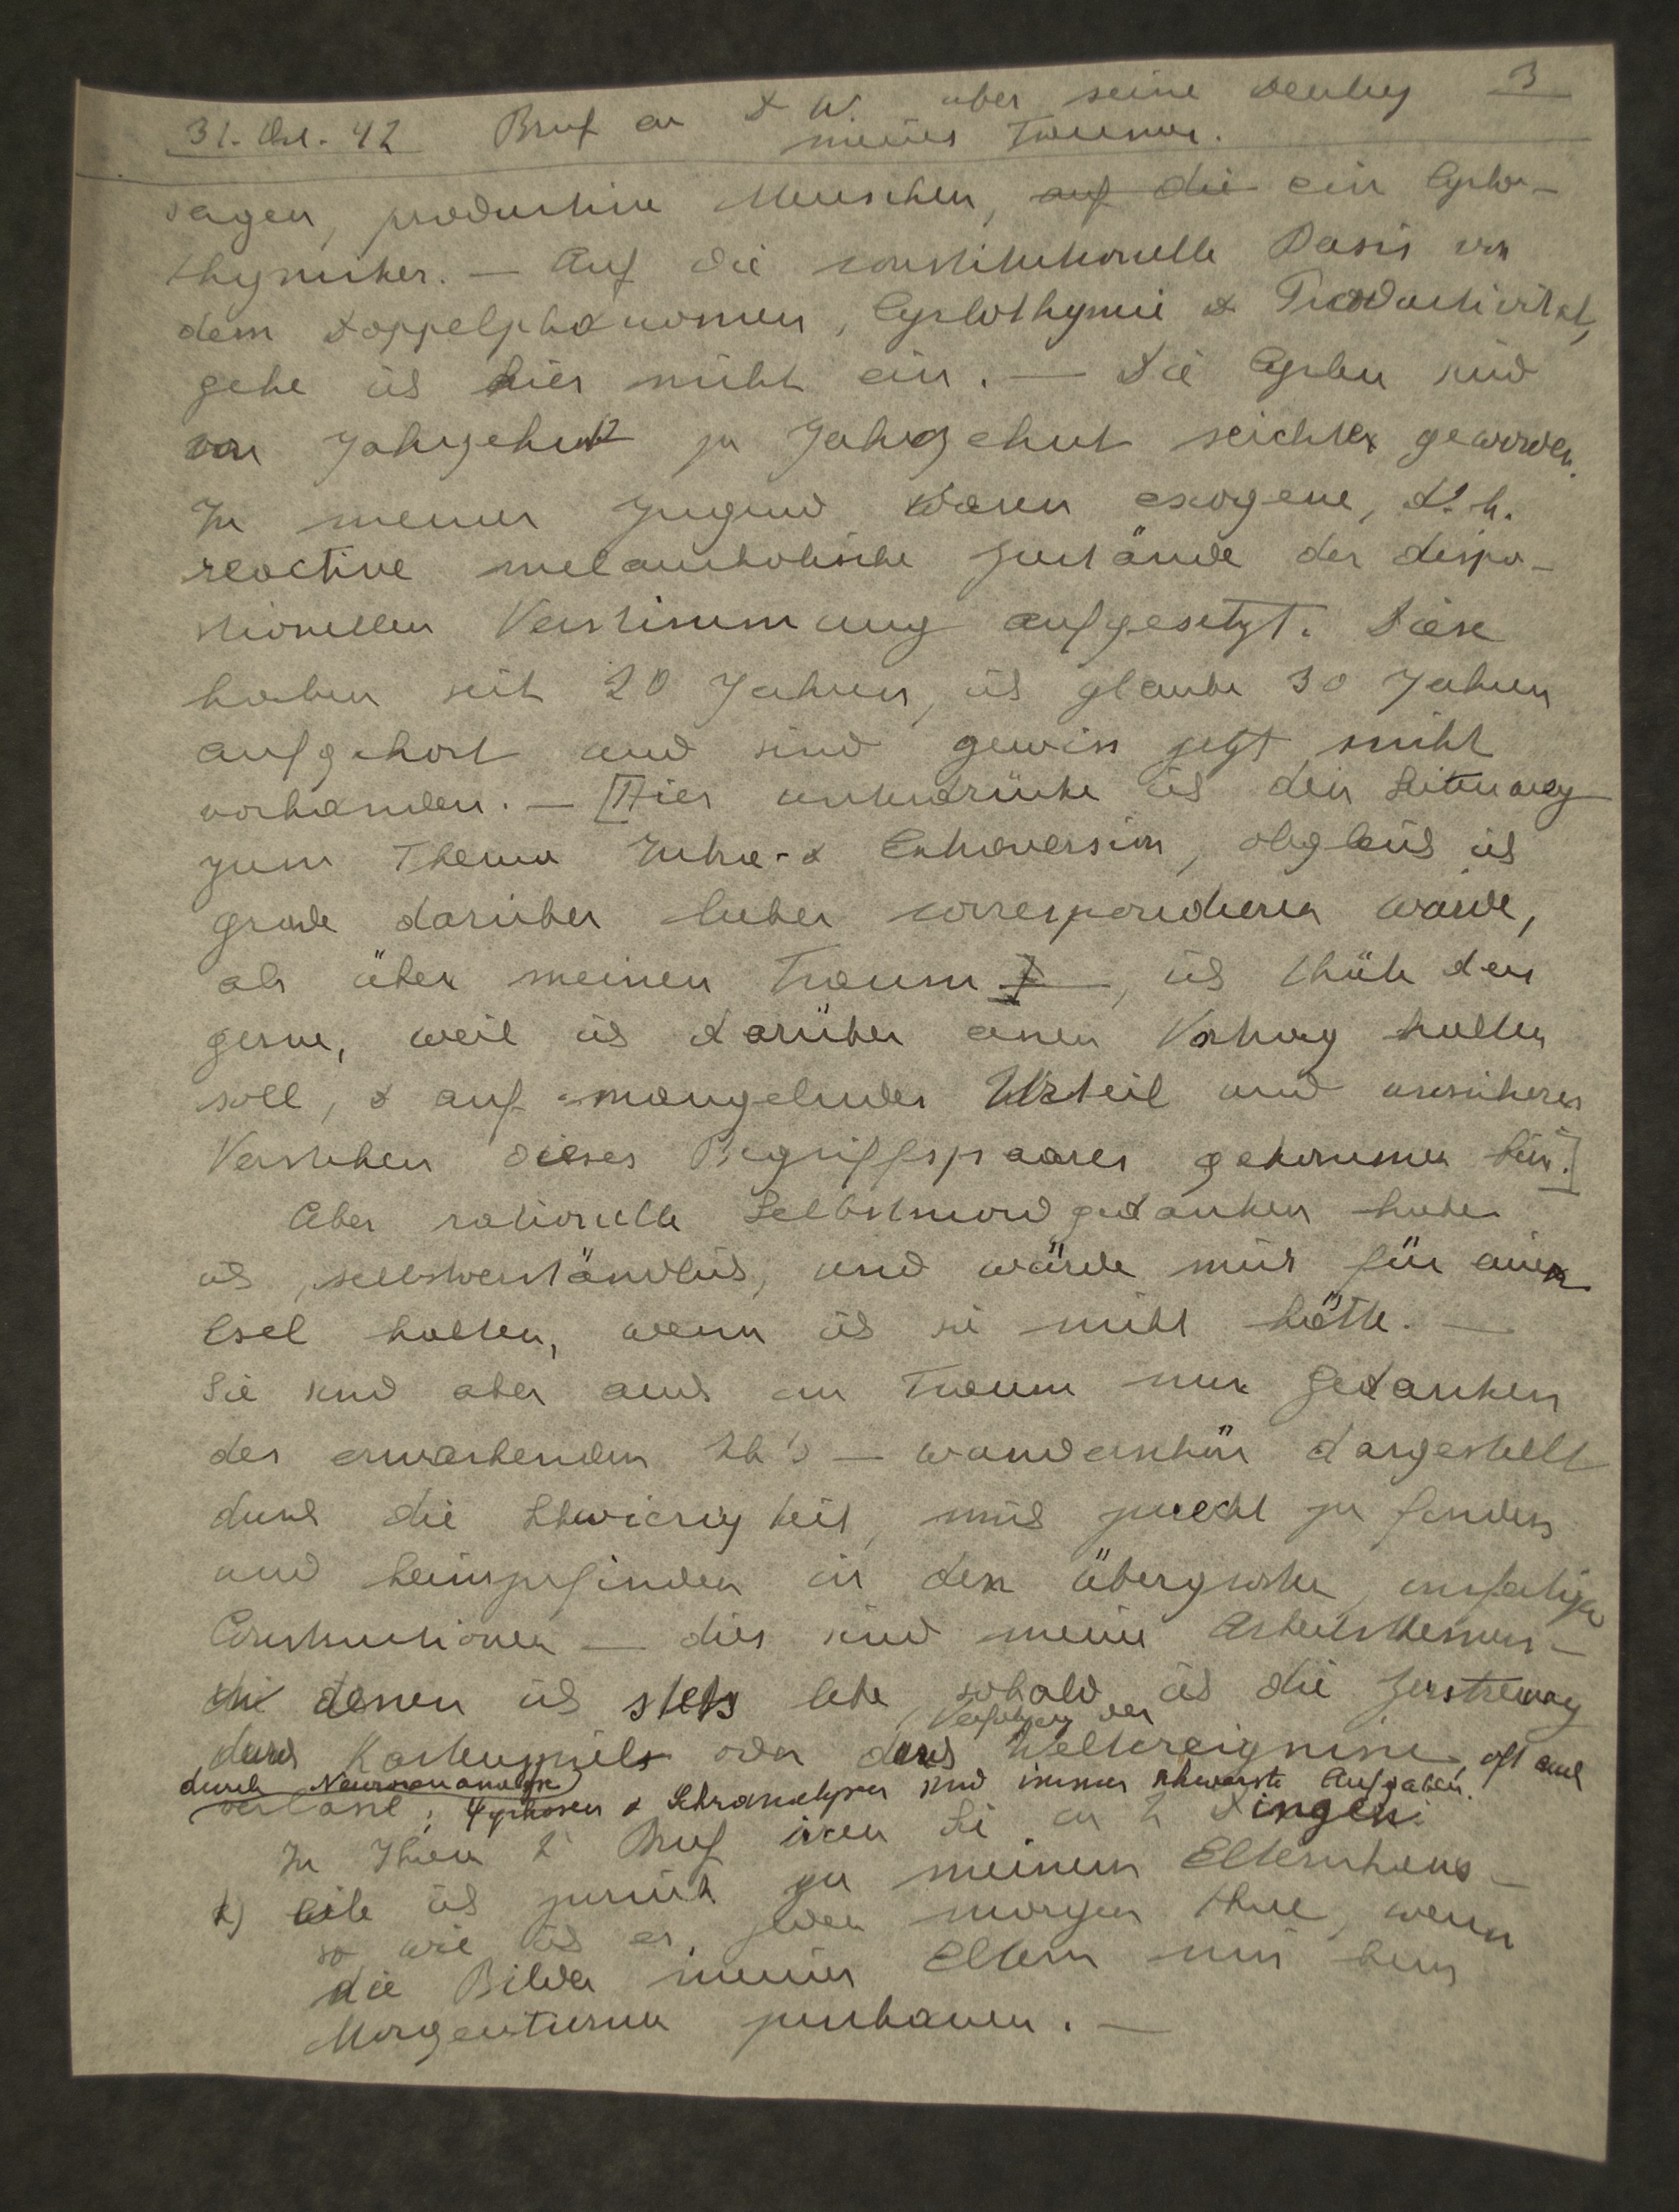 31. Okt. 42 Brief an D W. über seine Deutung 3
meines Traumes.
sagen, productive Menschen, auf die ein Cyclo-
thymiker. — Auf die constitutionelle Basis von
dem Doppelphänomen, Cyclothymie & Productivität,
gehe ich hier nicht ein. — Die Cyclen sind
von Jahrzehnt zu Jahrzehnt seichter geworden.
In meiner Jugend waren exogene, d. h.
reactive melancholische Zustände der dispo-
sitionellen Verstimmung aufgesetzt. Diese
haben seit 20 Jahren, ich glaube 30 Jahren
aufgehört und sind gewiss jetzt nicht
vorhanden. — [Hier unterdrücke ich den Seitenweg
zum Thema Intro- & Extraversion, obgleich ich
grade darüber lieber correspondieren würde,
als über meinen Traum ], ich thäte den
gerne, weil ich darüber einen Vortrag halten
soll, & auf mangelndes Urteil und unsicheres
Verstehen dieses Begriffspaares gekommen bin.]
Aber rationelle Selbstmordgedanken habe
ich, selbstverständlich, und würde mich für einen
Esel halten, wenn ich sie nicht hätte. —
Sie sind aber auch im Traum nur Gedanken
des erwachenden Ich's — wunderschön dargestellt
durch die Schwierigkeit, mich zurecht zu finden
und heimzufinden in den übergrossen, unfertigen
Constructionen — dies sind meine Arbeitsthemen —
in denen ich stets lebe, sobald ich die Zerstreuung
Verfolgung der
durch Kartenspiels oder durch Weltereignisse, oft auch
durch Neurosenanalysen
verlasse; Psychosen & Lehranalysen sind immer schwerste Aufgaben.
In Ihrem 2. Brief irren Sie in 2 Dingen:
1) eile ich zurück zu meinem Elternhaus —
so wie ich es jeden morgen thue, wenn
die Bilder meiner Eltern mir beim
Morgenturnen zuschauen. —